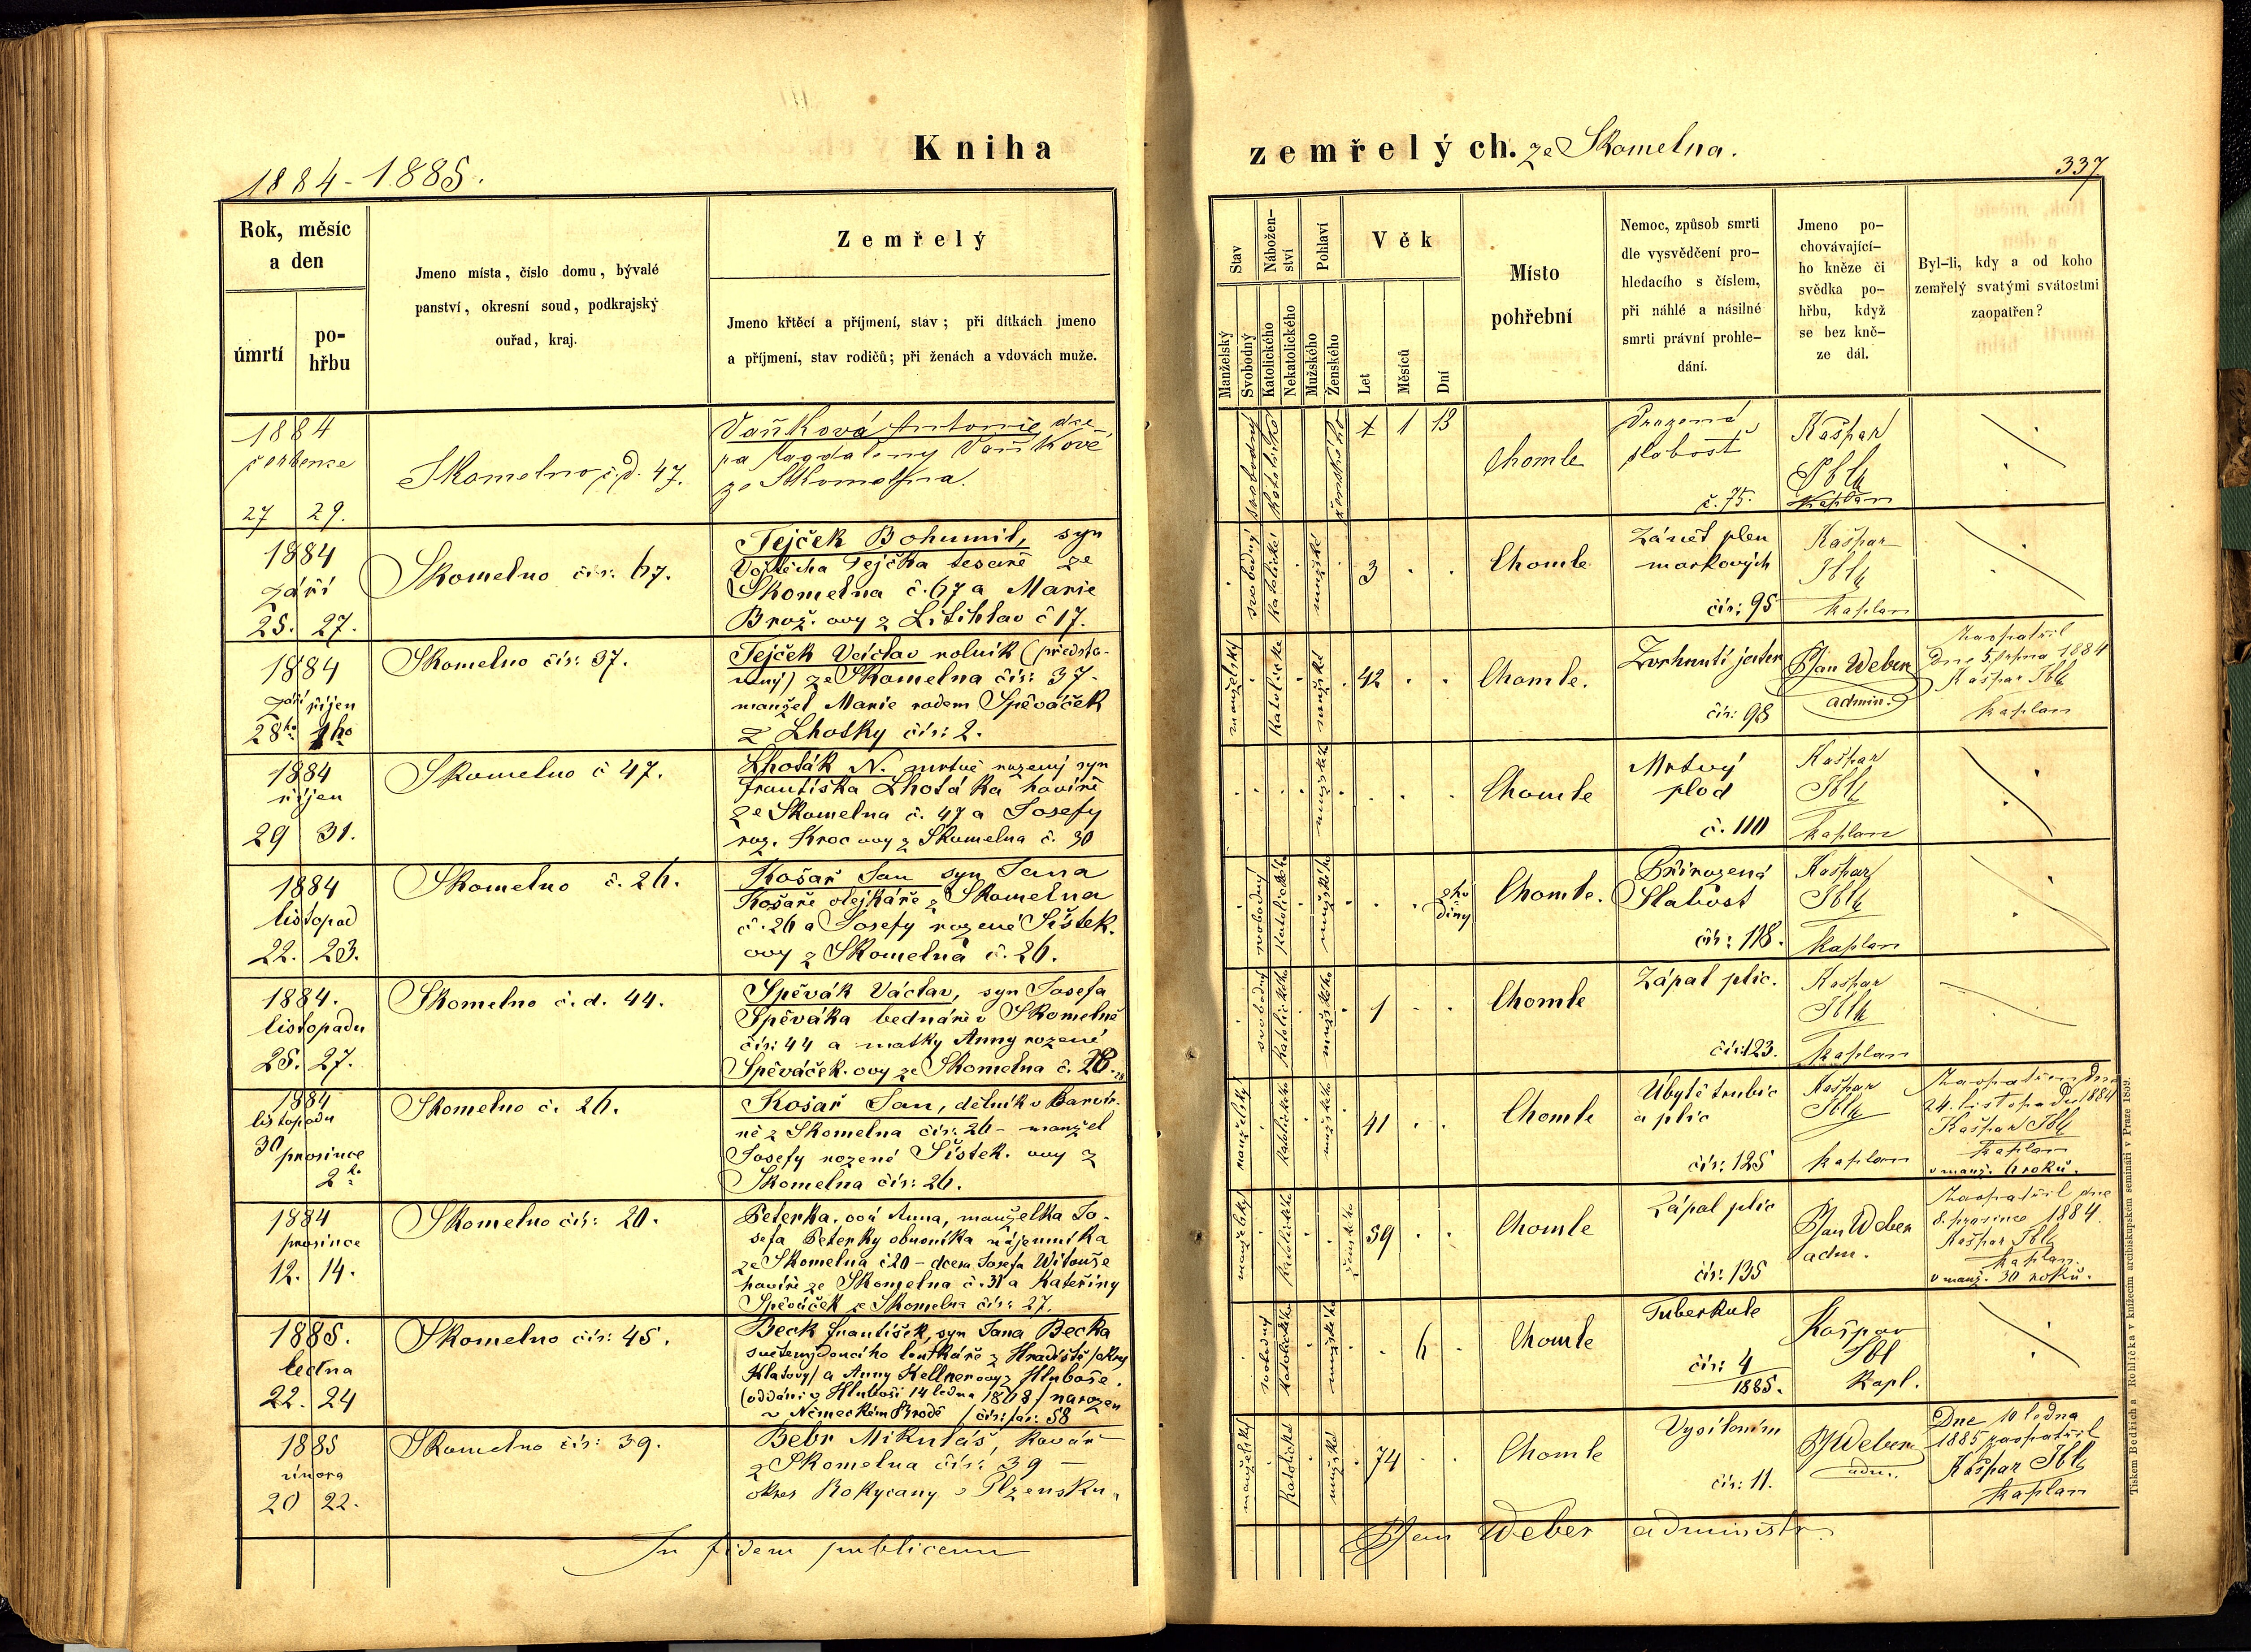 1884-1885.
Kniha
zemřelých. ze Skomelna.
337
Rok, měsíc
a den
úmrtí
po-
hřbu
Jmeno místa, číslo domu, bývalé
panství, okresní soud, podkrajský
ouřad, kraj.
Zemřelý
Jmeno křtěcí a příjmení, stav; při dítkách jmeno
a příjmení, stav rodičů; při ženách a vdovách muže.
Stav
Manželský
Svobodný
Nábožen-
ství
Katolického
Nekatolického
Pohlaví
Mužského
Ženského
Věk
Let
Měsíců
Dní
Místo
pohřební
Nemoc, způsob smrti
dle vysvědčení pro-
hledacího s číslem,
při náhlé a násilné
smrti právní prohle-
dání.
Jmeno po-
chovávající-
ho kněze či
svědka po-
hřbu, když
se bez kně-
ze dál.
Byl-li, kdy a od koho
zemřelý svatými svátostmi
zaopatřen?
1884
července
27 29.
Skomelno č.d. 47.
Vaňková Antonie dce-
ra Magdaleny Vaňkové
ze Skomelna.
svobodný
katolické
ženského
1 13
Chomle
slabost
č. 75.
Kašpar
Ibl
Kaplan
1884
září
25. 27.
Skomelno čís: 67.
Tejček Bohumil, syn
Vojtěcha Tejčka tesaře ze
Skomelna č. 67 a Marie
Brož. ovy z Litohlav č 17.
svobodný
katolické
mužské
3
Chomle
Zánět plen
mozkových
čís: 95
Kašpar
Ibl
kaplan
1884
září říjen
28ho 1ho
Skomelno čís: 37.
Tejček Václav rolník (předsta-
vený) ze Skomelna čís: 37.
manžel Marie rodem Spěváček
z Lhotky čís: 2.
manželský
katolické
mužské
42
Chomle.
Zvrhnutí jater
čís: 98
P Jan Weber
admin.
Zaopatřil
dne 5. srpna 1884
Kašpar Ibl
kaplan
1884
říjen
29 31.
Skomelno č 47.
Lhoták N. mrtvě rozený syn
Františka Lhotáka havíře
ze Skomelna č. 47 a Josefy
roz. Kroc ovy z Skomelna č. 30
mužské
Chomle
Mrtvý
plod
č. 110
Kašpar
Ibl
kaplan
1884
listopad
22. 23.
Skomelno č. 26.
Košař Jan syn Jana
Košaře olejkáře z Skomelna
č. 26 a Josefy rozené Šístek.
ovy z Skomelna č. 26.
svobodný
katolického
mužského
2 ho
diny
Chomle.
Přirozená
Slabost
čís: 118.
Kašpar
Ibl
kaplan
1884.
listopadu
25. 27.
Skomelno č. d. 44.
Spěvák Václav, syn Josefa
Spěváka bednáře v Skomelně
čís: 44 a matky Anny rozené
Spěváček. ovy ze Skomelna č. 28.
svobodný
katolického
mužského
1
Chomle
Zápal plic.
čís: 123.
Kašpar
Ibl
kaplan
1884
listopadu
30 prosince
2ho
Skomelno č. 26.
Košař Jan, dělník v Barvír-
ně z Skomelna čís: 26 - manžel
Josefy rozené Šístek. ovy z
Skomelna čís: 26.
manželský
katolického
mužského
41
Chomle
Úbytě trubic
a plic
čís: 125
Kašpar
Ibl
kaplan
Zaopatřen dne
24. listopadu 1884
Kašpar Ibl
kaplan
v manž. 6 roků.
1884
prosince
12. 14.
Skomelno čís: 20.
Peterka. ová Anna, manželka Jo-
sefa Peterky obuvníka nájemníka
ze Skomelna č 20 - dcera Josefa Witouše
havíře ze Skomelna č. 31 a Kateřiny
Spěváček ze Skomelna čís: 27.
manželský
katolického
ženského
59
Chomle
Zápal plic
čís: 135
P Jan Weber
adm.
Zaopatřil dne
8. prosince 1884
Kašpar Ibl
kaplan.
v manž. 30 roků.
1885.
ledna
22. 24
Skomelno čís: 45.
Beck František, syn Jana Becka
světem jdoucího loutkáře z Hradiště / okres
Klatovy / a Anny Kellnerovy z Hluboše.
v Německém Brodě / čís: far: 58
svobodný
katolického
mužského
6
Chomle
Tuberkule
čís: 4
1885.
Kašpar
Ibl
Kapl.
1885
února
20 22.
Skomelno čís: 39.
Bebr Mikuláš, kovář
z Skomelna čís: 39 -
okres Rokycany v Plzensku.
manželský
katolické
mužské
74
Chomle
Vysílením
čís: 11.
P J Weber
adm.
Dne 10 ledna
1885 zaopatřil
Kašpar Ibl
kaplan
In fidem publicam
P Jan Weber administr.
Tiskem Bedřicha Rohlíčka v knížecím arcibiskupském semináři v Praze 1869.